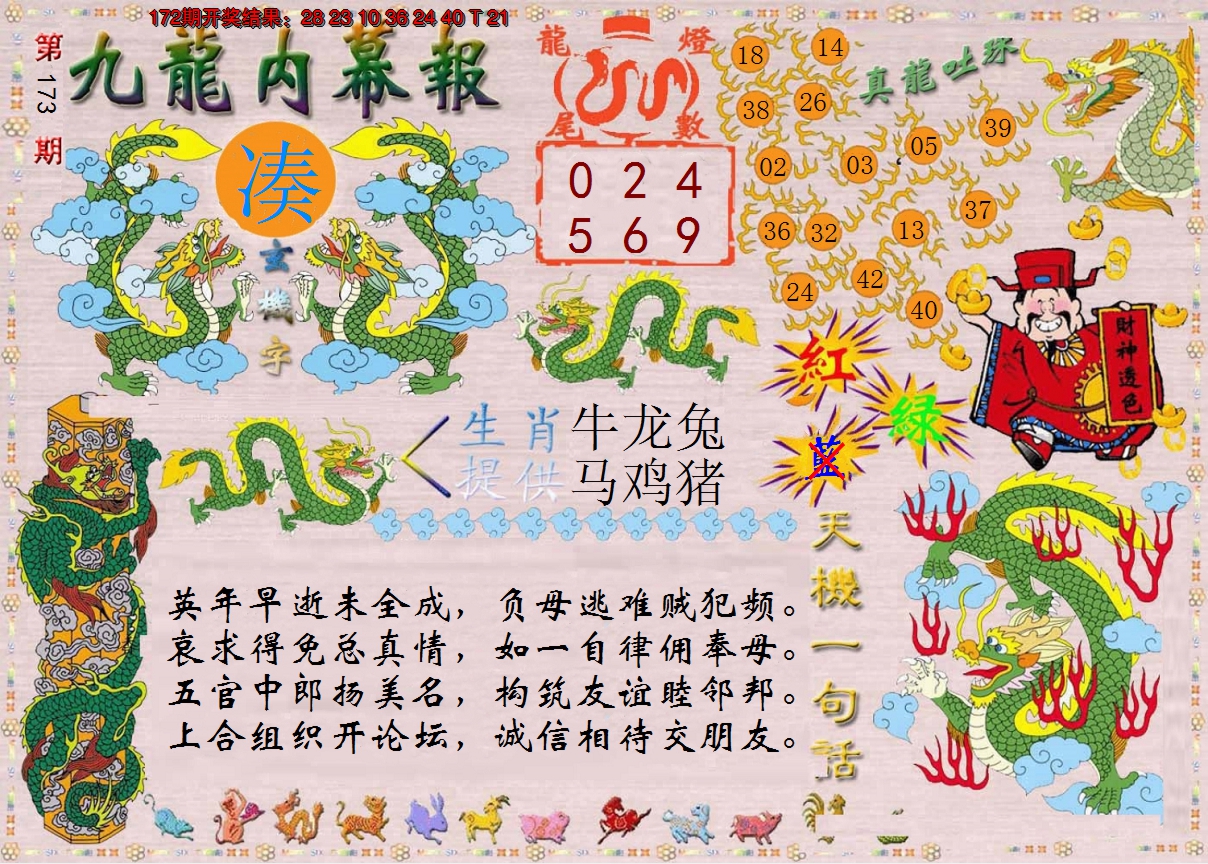 172期开奖结果：28 23 10 36 24 40 T 21
第173期
九龍内幕報
凑
玄機字
龍燈
尾數
0 2 4
5 6 9
真龍吐珠
18 14
38 26
02 03 05 39
36 32 13 37
24 42 40
財神透色
紅
綠
藍
生肖 牛龙兔
提供 马鸡猪
英年早逝未全成，负母逃难贼犯频。
哀求得免总真情，如一自律佣奉母。
五官中郎扬美名，构筑友谊睦邻邦。
上合组织开论坛，诚信相待交朋友。
天機一句話